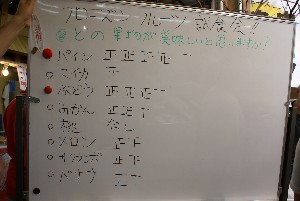 フローズンフルーツ試食会!!
@どの果物が美味しいと思いますか?
パイン 正正正正一
スイカ 下
ぶどう 正正正一
みかん 正正下
桃
メロン 正下
サクランボ 正下
バナナ